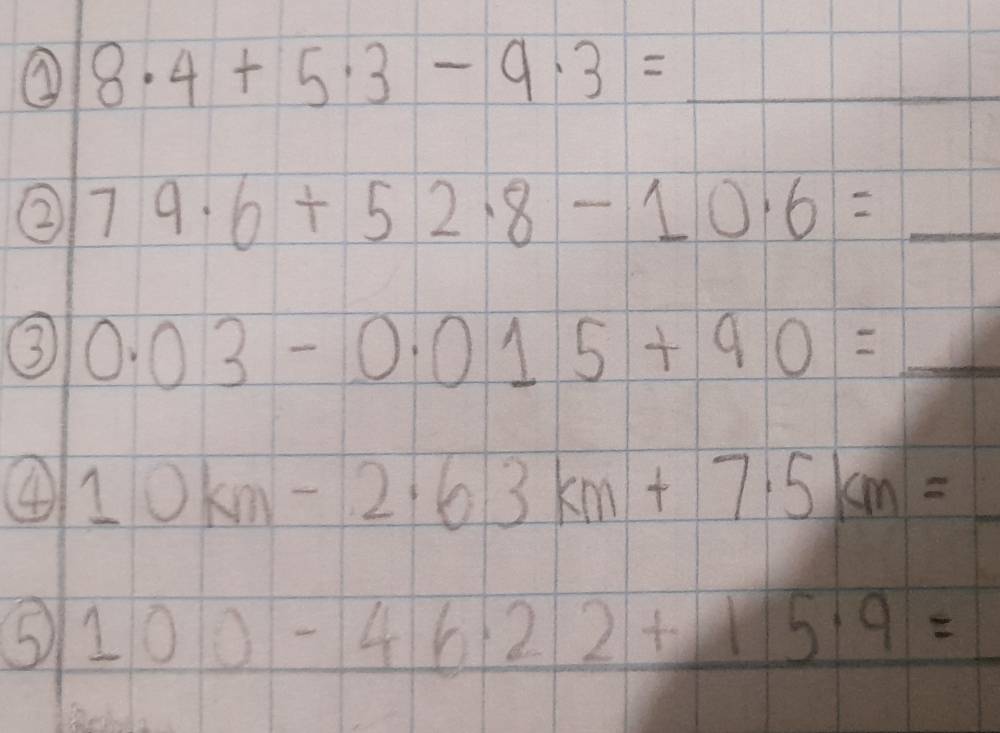 ① 8.4 + 5.3 - 9.3 =
② 79.6 + 52.8 - 10.6 =
③ 0.03 - 0.015 + 90 =
④ 10km - 2.63km + 7.5km =
⑤ 100 - 46.22 + 15.9 =